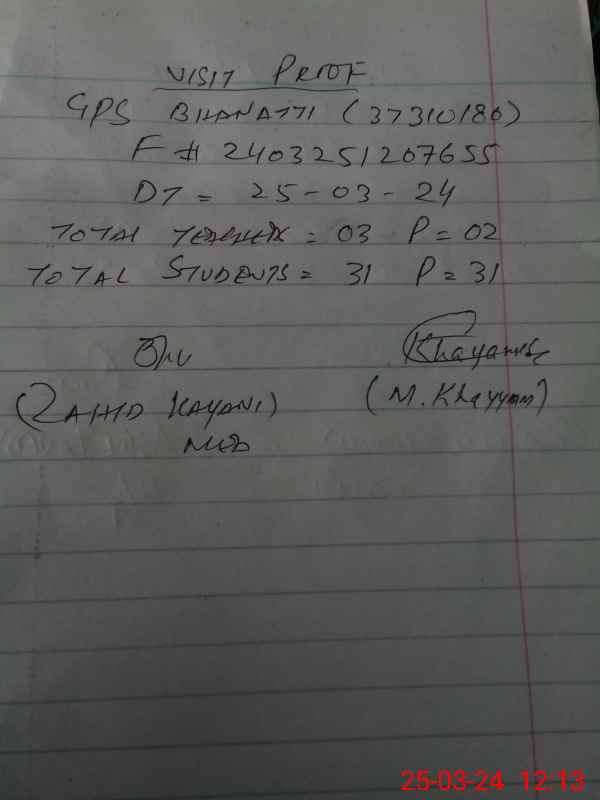 VISIT PROOF
GPS BHANATTI (37310186)
F # 2403251207655
DT = 25-03-24
TOTAL TEACHERS = 03 P = 02
TOTAL STUDENTS = 31 P = 31
Khayam
(ZAHID KAYANI) (M. Khayyam)
25-03-24 12:13